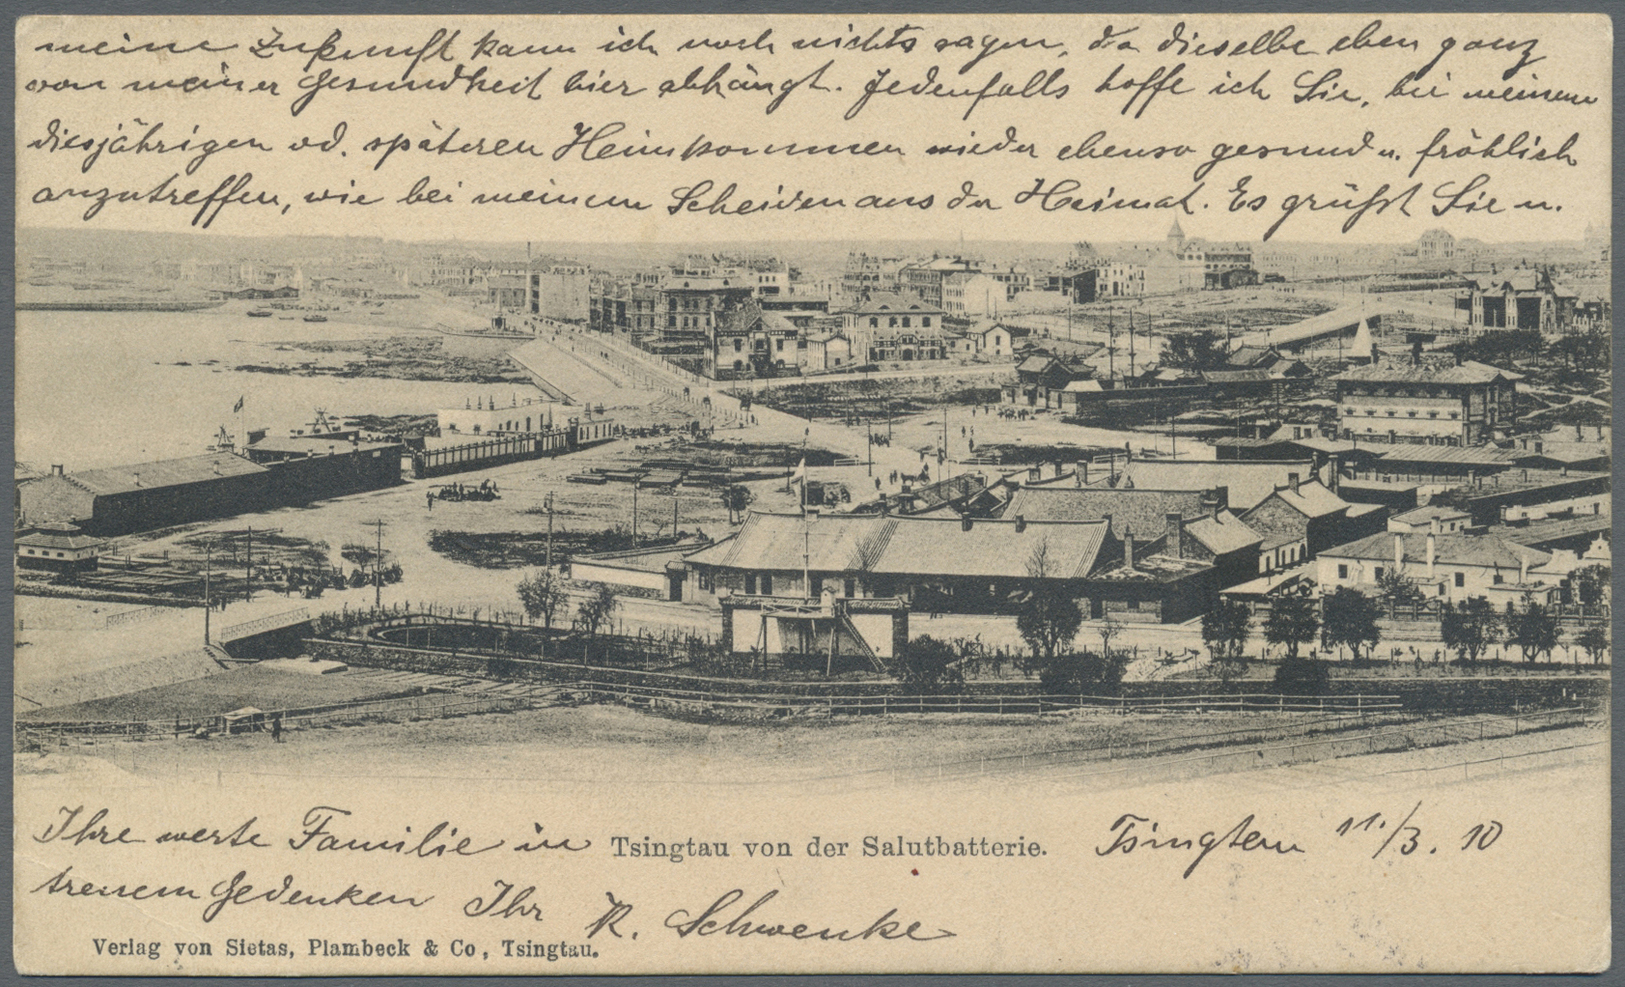 meine Zukunft kann ich noch nichts sagen, da dieselbe eben ganz
von meiner Gesundheit hier abhängt. Jedenfalls hoffe ich Sie, bei meinem
diesjährigen od. späteren Heimkommen wieder ebenso gesund u. fröhlich
anzutreffen, wie bei meinem Scheiden aus der Heimat. Es grüßt Sie u.
Ihre werte Familie in
Tsingtau von der Salutbatterie.
Tsingtau 11./3. 10
treuem Gedenken Ihr R. Schwenke
Verlag von Sietas, Plambeck & Co, Tsingtau.